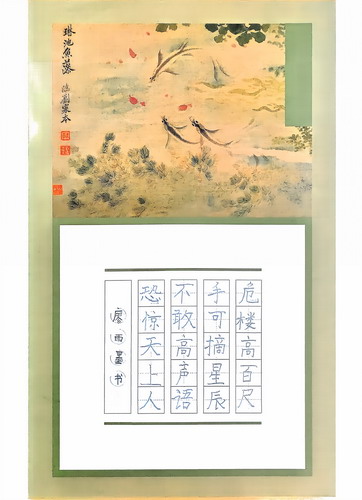 琳池魚藻
臨劉寀本
危楼高百尺
手可摘星辰
不敢高声语
恐惊天上人
廖雨墨书